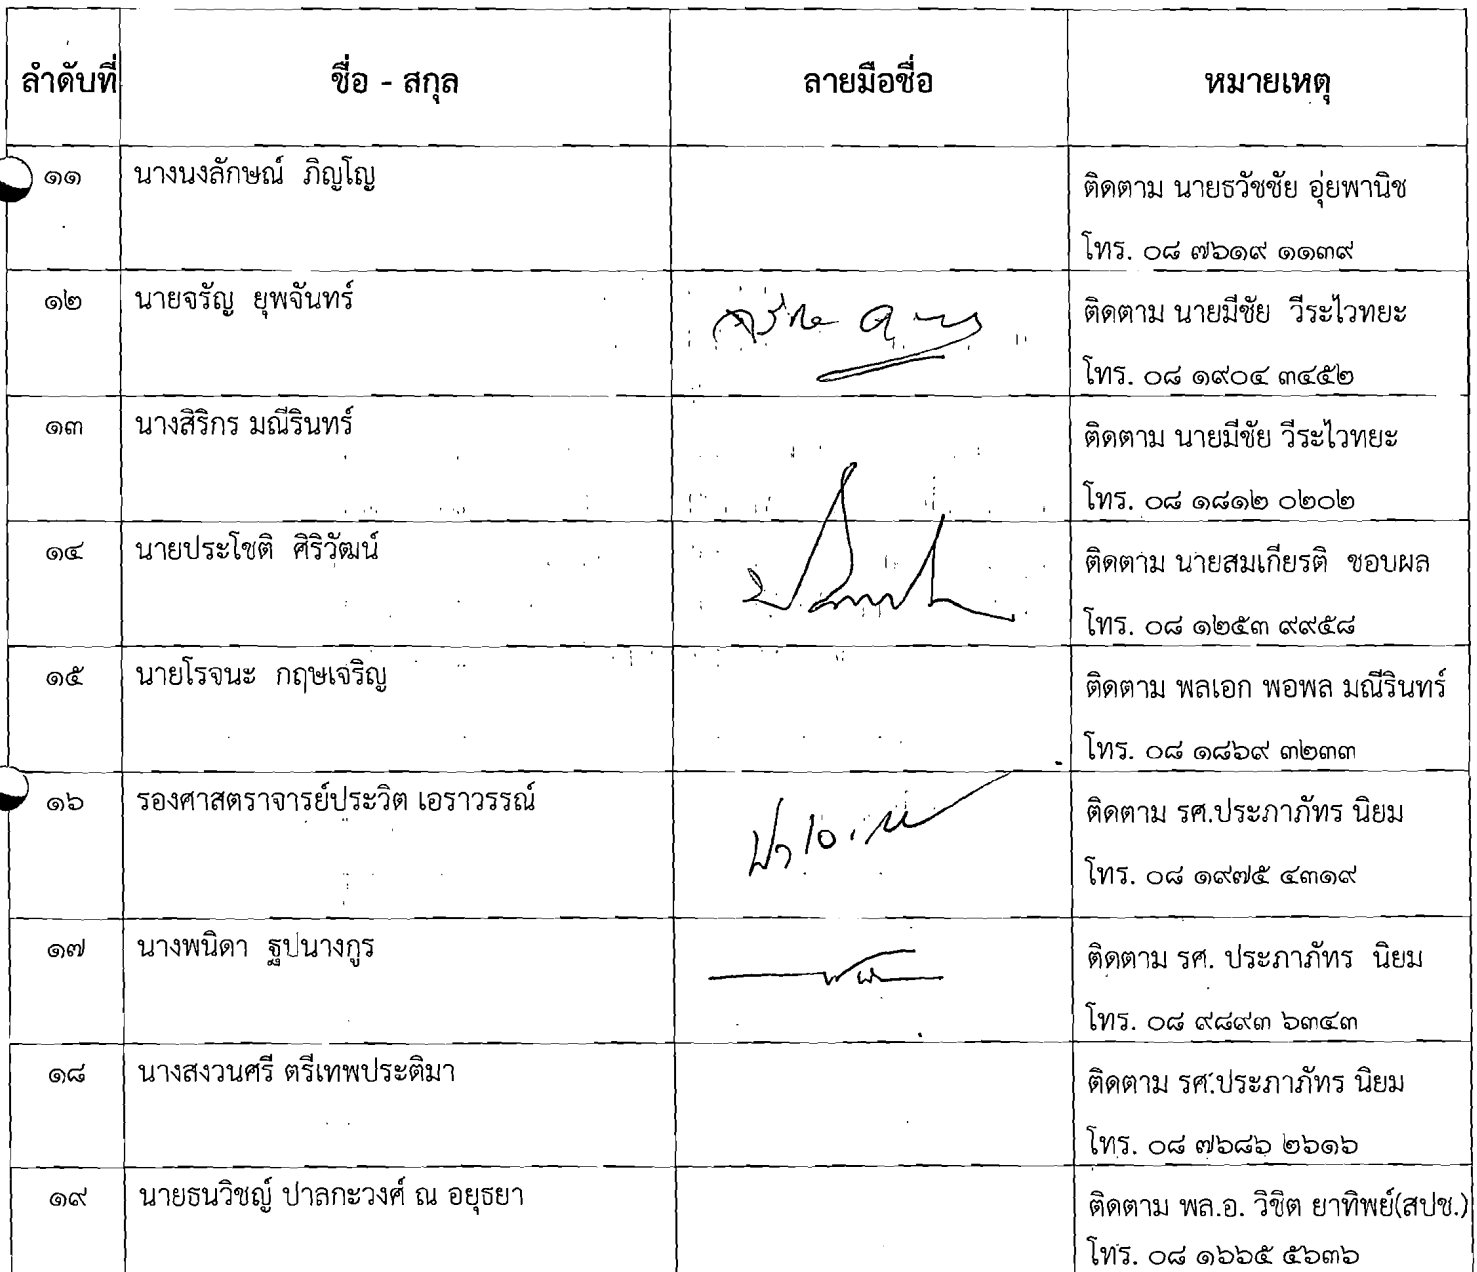 ลำดับที่ ชื่อ - สกุล ลายมือชื่อ หมายเหตุ
๑๑ นางนงลักษณ์ ภิญโญ ติดตาม นายธวัชชัย อุ่ยพานิช
โทร. ๐๘ ๗๖๑๙ ๑๑๓๙
๑๒ นายจรัญ ยุพจันทร์ ติดตาม นายมีชัย วีระไวทยะ
โทร. ๐๘ ๑๙๐๔ ๓๔๕๒
๑๓ นางสิริกร มณีรินทร์ ติดตาม นายมีชัย วีระไวทยะ
โทร. ๐๘ ๑๘๑๒ ๐๒๐๒
๑๔ นายประโชติ ศิริวัฒน์ ติดตาม นายสมเกียรติ ชอบผล
โทร. ๐๘ ๑๒๕๓ ๙๙๕๘
๑๕ นายโรจนะ กฤษเจริญ ติดตาม พลเอก พอพล มณีรินทร์
โทร. ๐๘ ๑๘๖๙ ๓๒๓๓
๑๖ รองศาสตราจารย์ประวิต เอราวรรณ์ ติดตาม รศ.ประภาภัทร นิยม
โทร. ๐๘ ๑๙๗๕ ๔๓๑๙
๑๗ นางพนิดา ฐปนางกูร ติดตาม รศ. ประภาภัทร นิยม
โทร. ๐๘ ๙๘๙๓ ๖๓๔๓
๑๘ นางสงวนศรี ตรีเทพประติมา ติดตาม รศ.ประภาภัทร นิยม
โทร. ๐๘ ๗๖๘๖ ๒๖๑๖
๑๙ นายธนวิชญ์ ปาลกะวงศ์ ณ อยุธยา ติดตาม พล.อ. วิชิต ยาทิพย์(สปช.)
โทร. ๐๘ ๑๖๖๕ ๕๖๓๖